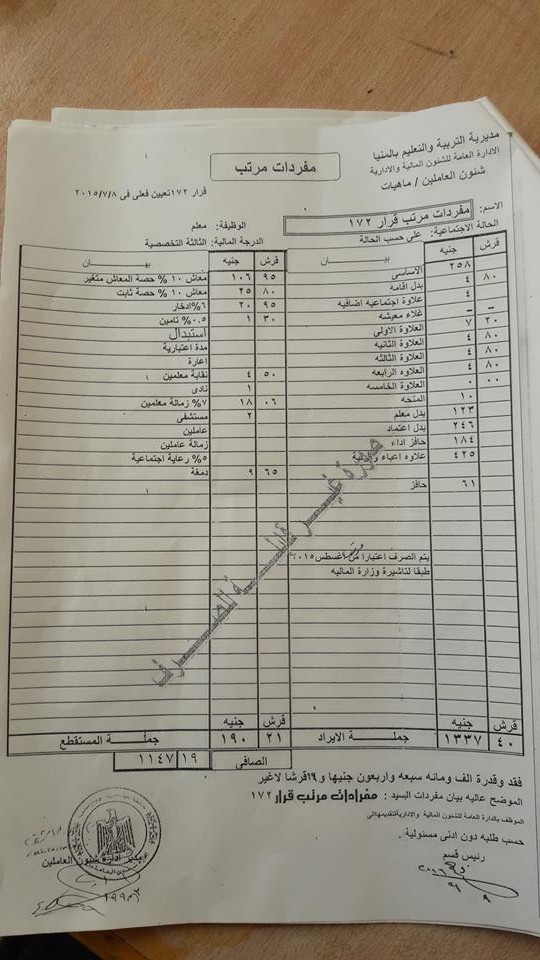 مديرية التربية والتعليم بالمنيا
الادارة العامة للشئون المالية والادارية
شئون العاملين / ماهيات
مفردات مرتب
قرار ١٧٢ تعيين فعلى فى ٢٠١٥/٧/٨
الاسم: مفردات مرتب قرار ١٧٢
الحالة الاجتماعية: على حسب الحالة
الوظيفة: معلم
الدرجة المالية: الثالثة التخصصية
قرش جنيه بيــــان قرش جنيه بيــــان
٢٥٨ الاساسى ٩٥ ١٠٦ معاش ١٠ % حصة المعاش متغير
٨٠ ٤ بدل اقامه ٨٠ ٢٥ معاش ١٠ % حصة ثابت
٤ علاوة اجتماعيه اضافيه ٩٥ ٢٠ ٦% ادخار
– – غلاء معيشه ٣٠ ١ ٠.٥% تامين
٢٠ ٧ العلاوة الاولى استبدال
٨٠ ٤ العلاوة الثانيه مدة اعتبارية
٨٠ ٤ العلاوة الثالثه اعارة
٨٠ ٤ العلاوه الرابعه ٥٠ ٤ نقابة معلمين
٠٠ ٠ العلاوة الخامسه ١ نادى
١٠ المنحه ٠٦ ١٨ ٧% زمالة معلمين
١٢٣ بدل معلم ٢ مستشفى
٢٤٦ بدل اعتماد عاملين
١٨٤ حافز اداء زمالة عاملين
٤٢٥ علاوه اعباء ٥% رعاية اجتماعية
٦٥ ٩ دمغة
٦١ حافز
يتم الصرف اعتبارا من اغسطس ٢٠١٥
طبقا لتاشيرة وزارة الماليه
قرش جنيه قرش جنيه
٤٠ ١٣٣٧ جملـــة الايراد ٢١ ١٩٠ جملـــة المستقطع
الصافى ١٩ ١١٤٧
فقد وقدرة الف ومائه سبعه واربعون جنيها و ١٩ قرشا لاغير
الموضح عاليه بيان مفردات السيد : مفرادات مرتب قرار ١٧٢
الموظف بالادارة العامة للشئون المالية والاداريةلتقديمهاالى
حسب طلبه دون ادنى مسئولية .
رئيس قسم
مدير ادارة شئون العاملين